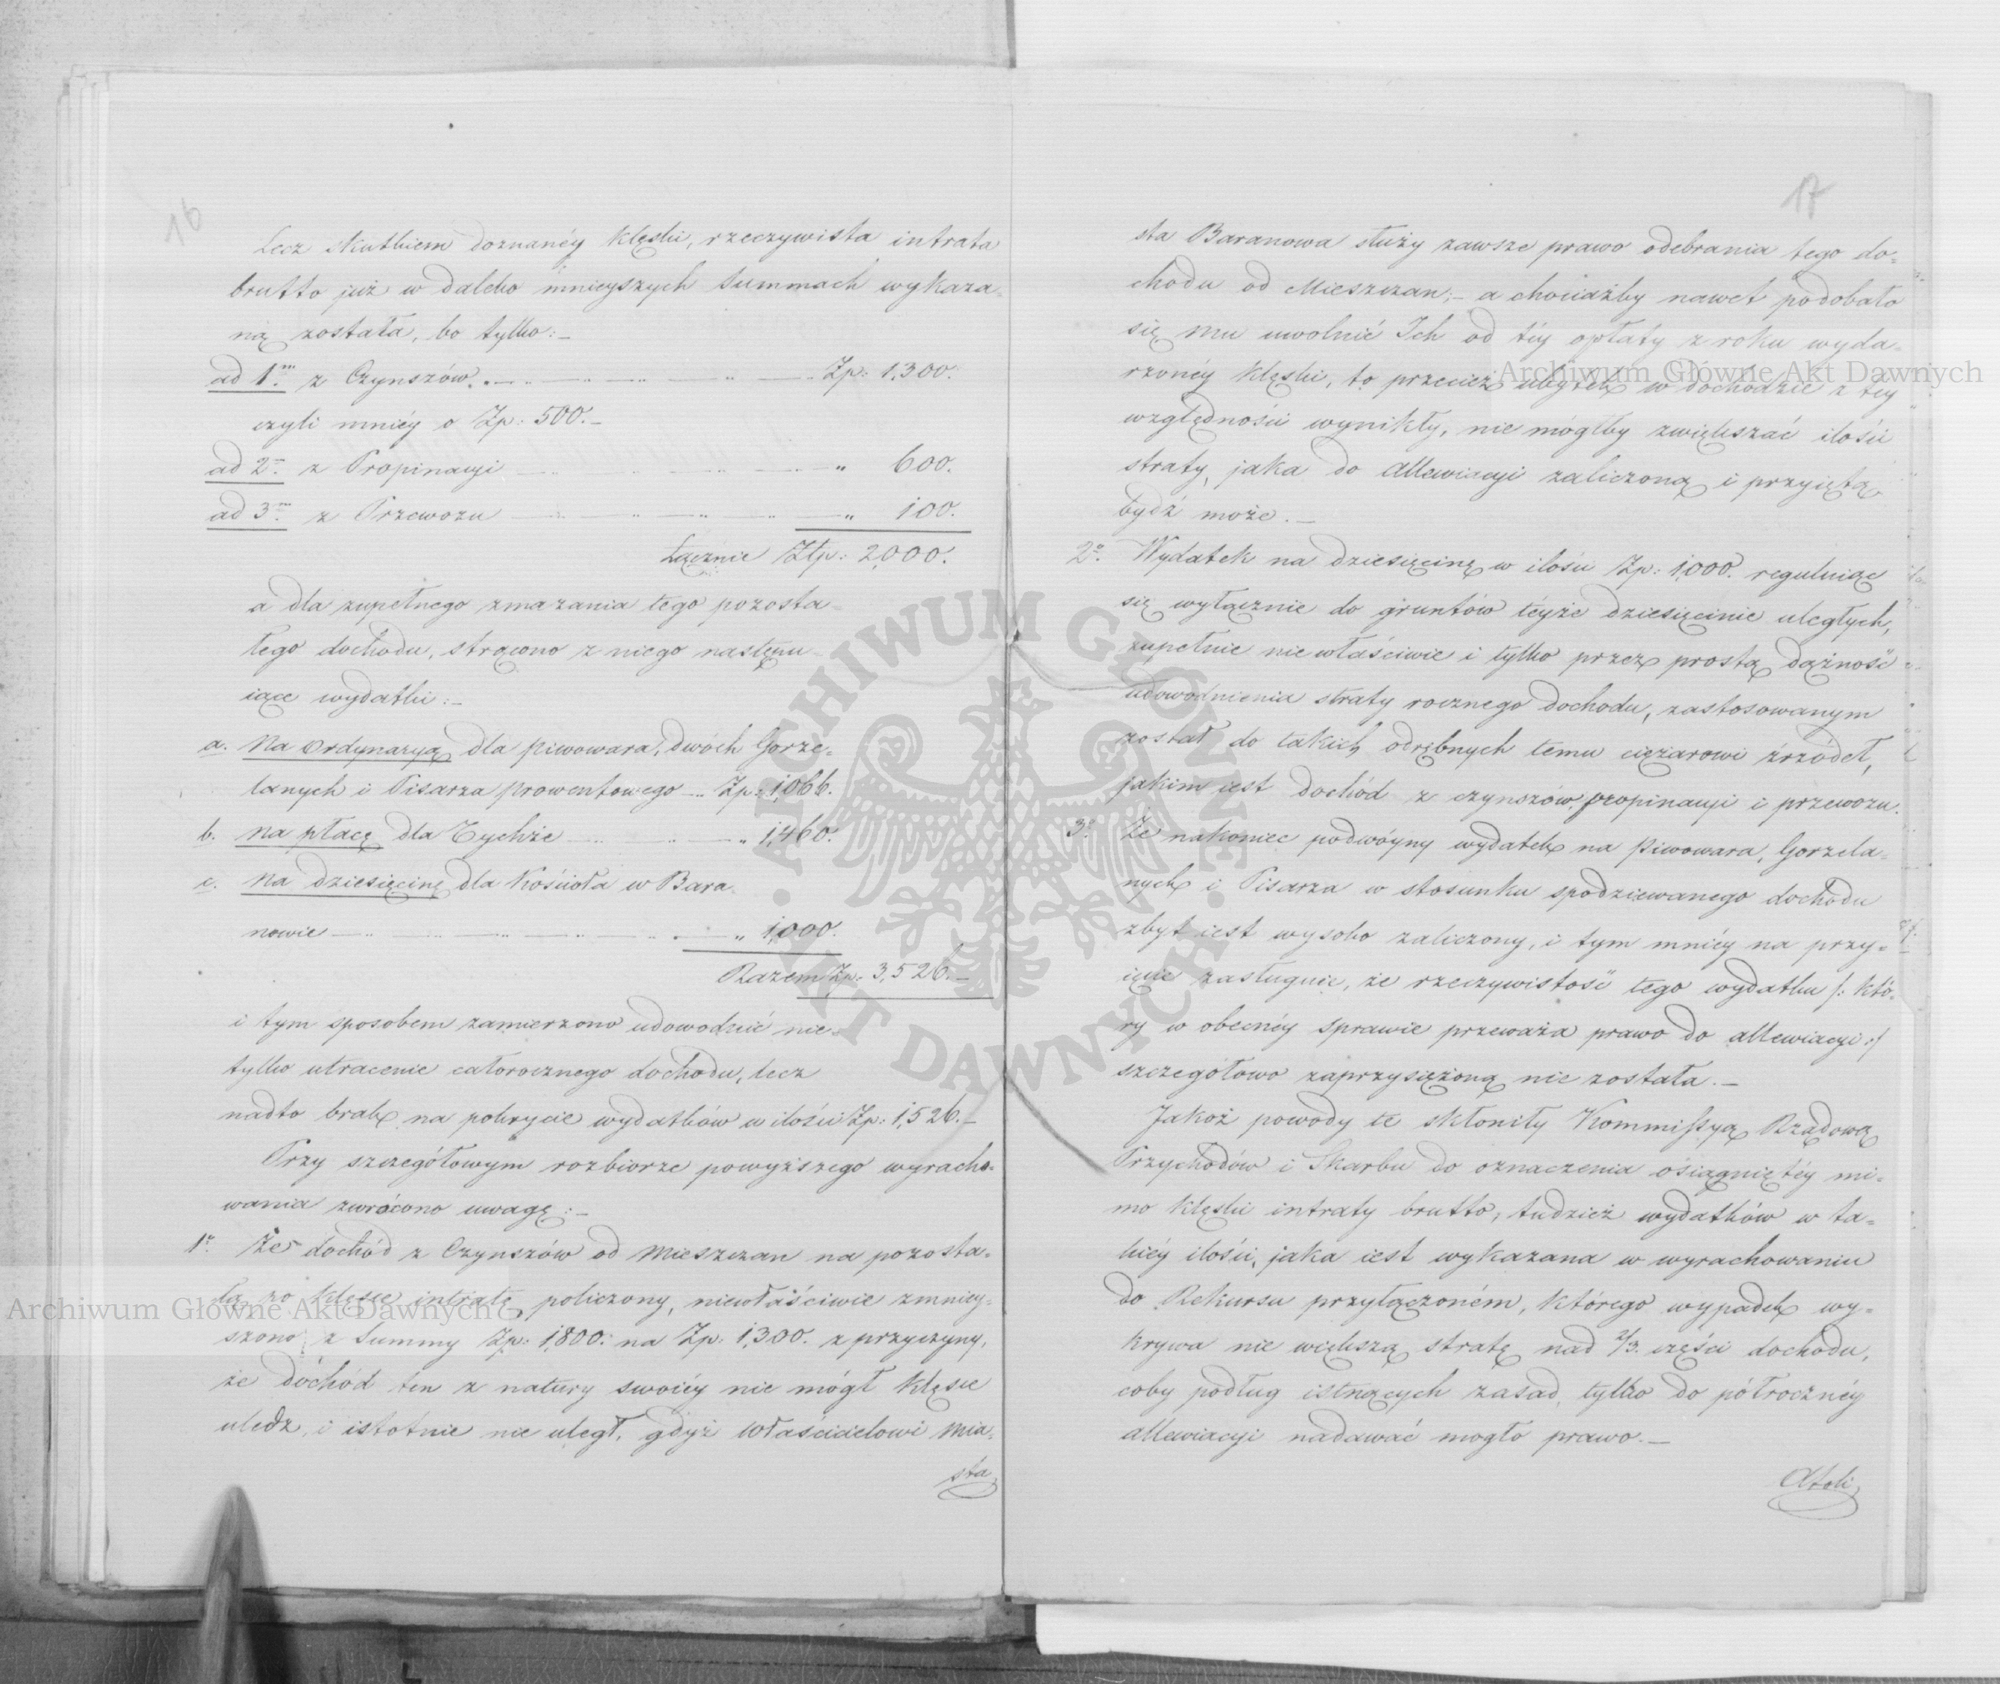 16
Lecz skutkiem doznanéy klęski, rzeczywista intrata
brutto już w daleko mnieyszych summach wykaza-
ną została, bo tylko:-
ad 1m z Czynszów. Zp: 1,300.
czyli mniéy o Zp: 500.-
ad 2m z Propinacyi " 600.
ad 3m z Przewozu " 100.
Łącznie Złp: 2,000.
a dla zupełnego zmazania tego pozosta-
łego dochodu, strącono z niego nastęnu-
iące wydatki:-
a. na ordynaryą dla piwowara, dwóch Gorze-
lanych i Pisarza prowentowego Zp: 1,066.
b. na płacę dla Tychże " 1,460.
c. na dziesięcinę dla Kościoła w Bara-
nowie " 1,000.
Razem Zp: 3,526.-
i tym sposobem zamierzono udowodnić nie-
tylko utracenie całorocznego dochodu, lecz
nadto brak na pokrycie wydatków w ilości Zp: 1,526.-
Przy szczegółowym rozbiorze powyższego wyracho-
wania zwrócono uwagę:-
1o. Że dochód z Czynszów od Mieszczan na pozosta-
łą po klęsce intratę policzony, niewłaściwie zmniey-
szono z Summy Zp: 1,800. na Zp: 1,300. z przyczyny,
że dochód ten z natury swoiéy nie mógł klęsce
uledz, i istotnie nie uległ, gdyż Właścicielowi Mia-
sta
17
sta Baranowa służy zawsze prawo odebrania tego do-
chodu od Mieszczan;- a chociażby nawet podobało
się mu uwolnić Ich od téy opłaty z roku wyda-
rzonéy klęski, to przecież ubytek w dochodzie z téy
względności wynikły, nie mógłby zwiększać ilości
straty, jaka do allewiacyi zaliczoną i przyiętą
bydź może.-
2o. Wydatek na dziesięcinę w ilości Zp: 1,000. reguluiąc
się wyłącznie do gruntów téyże dziesięcinie uległych,
zupełnie niewłaściwie i tylko przez prostą dążność
udowodnienia straty rocznego dochodu, zastosowanym
został do takich odrębnych temu ciężarowi źrzódeł,
jakim iest dochód z czynszów, propinacyi i przewozu.
3o. Że nakoniec podwóyny wydatek na piwowara, Gorzela-
nych i Pisarza w stosunku spodziewanego dochodu
zbyt iest wysoko zaliczony, i tym mniéy na przy-
ięcie zasługuie, że rzeczywistość tego wydatku /: któ-
ry w obecnéy sprawie przeważa prawo do allewiacyi :/
szczegółowo zaprzysiężoną nie została.-
Jakoż powody te skłoniły Kommissyą Rządową
Przychodów i Skarbu do oznaczenia osiągniętéy mi-
mo klęski intraty brutto, tudzież wydatków w ta-
kiéy ilości, jaka iest wykazana w wyrachowaniu
do Rekursu przyłączoném, którego wypadek wy-
krywa nie większą stratę nad 2/3. części dochodu,
coby podług istnących zasad, tylko do półrocznéy
allewiacyi nadawać mogło prawo.-
Atoli
Archiwum Główne Akt Dawnych
Archiwum Główne Akt Dawnych
ARCHIWUM GŁÓWNE AKT DAWNYCH